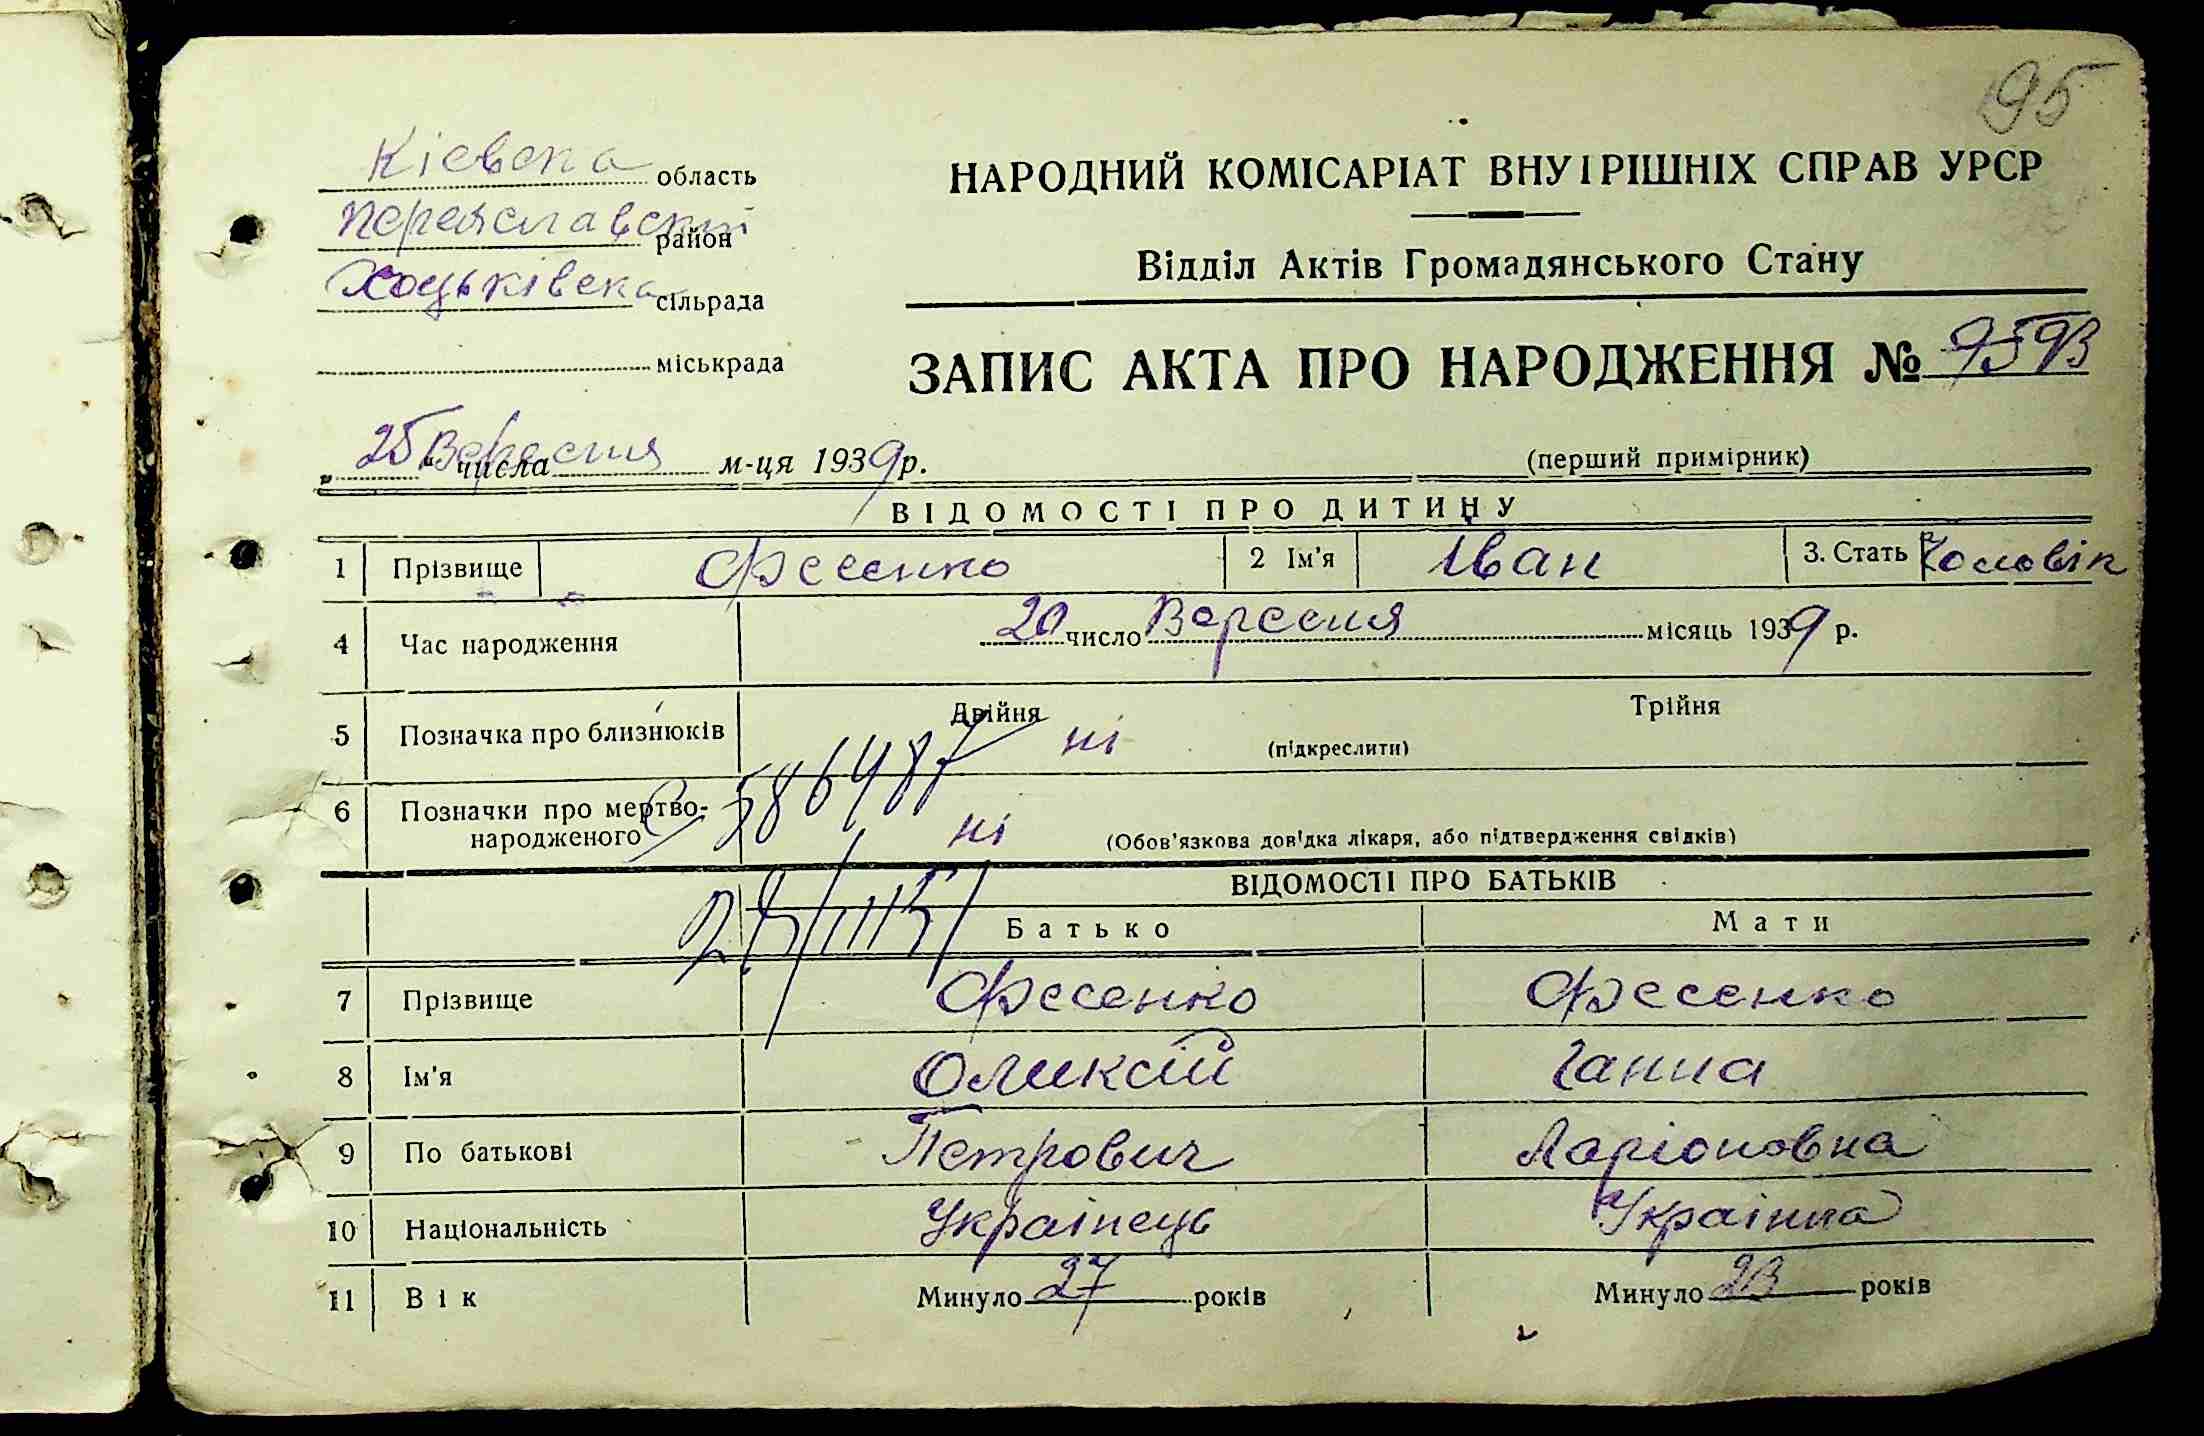 95
Кієвска область
НАРОДНИЙ КОМІСАРІАТ ВНУТРІШНІХ СПРАВ УРСР
Переяславский район
Відділ Актів Громадянського Стану
Хоцьківска сільрада
міськрада
ЗАПИС АКТА ПРО НАРОДЖЕННЯ №
„25“ числа Вересня м-ця 1939 р.
(перший примірник)
ВІДОМОСТІ ПРО ДИТИНУ
1 Прізвище Фесенко 2 Ім'я Іван 3. Стать Чоловік
4 Час народження 20 число Вересня місяць 1939 р.
5 Позначка про близнюків Двійня ні (підкреслити) Трійня
6 Позначки про мертво-
народженого ні (Обов'язкова довідка лікаря, або підтвердження свідків)
586487
ВІДОМОСТІ ПРО БАТЬКІВ
Батько Мати
7 Прізвище Фесенко Фесенко
8 Ім'я Оликсій Ганна
9 По батькові Петрович Ларіоновна
10 Національність Українець Українка
11 Вік Минуло 27 років Минуло 23 років